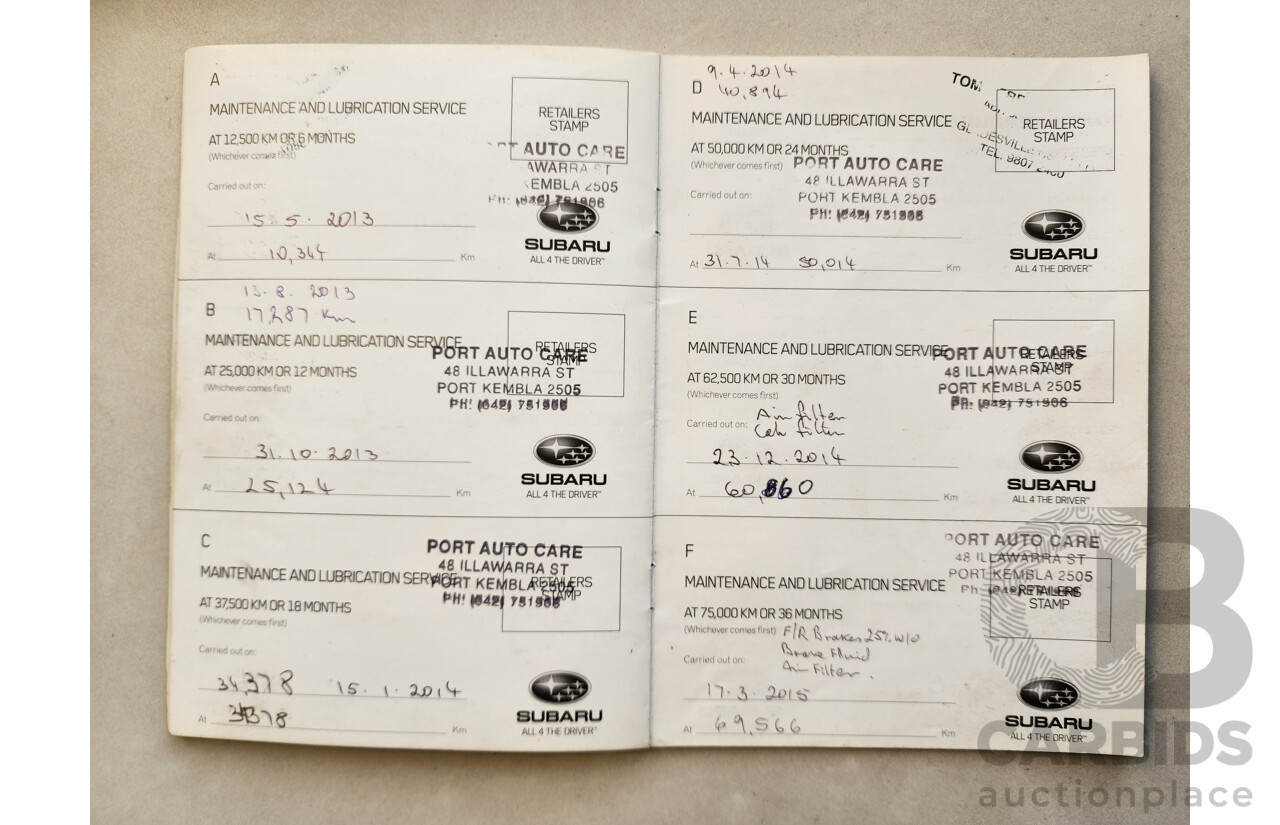 A
MAINTENANCE AND LUBRICATION SERVICE
AT 12,500 KM OR 6 MONTHS
(Whichever comes first)
Carried out on:
15.5.2013
At 10,344 Km
RETAILERS
STAMP
AUTO CARE
AWARRA ST
KEMBLA 2505
PH: (042) 751906
SUBARU
ALL 4 THE DRIVER™
13.8.2013
B
17,287 Km
MAINTENANCE AND LUBRICATION SERVICE
AT 25,000 KM OR 12 MONTHS
(Whichever comes first)
Carried out on:
31.10.2013
At 25,124 Km
RETAILERS
STAMP
PORT AUTO CARE
48 ILLAWARRA ST
PORT KEMBLA 2505
PH: (042) 751906
SUBARU
ALL 4 THE DRIVER™
C
MAINTENANCE AND LUBRICATION SERVICE
AT 37,500 KM OR 18 MONTHS
(Whichever comes first)
Carried out on:
34,378 15.1.2014
At 34378 Km
RETAILERS
STAMP
PORT AUTO CARE
48 ILLAWARRA ST
PORT KEMBLA 2505
PH: (042) 751906
SUBARU
ALL 4 THE DRIVER™
9.4.2014
D 40,894
MAINTENANCE AND LUBRICATION SERVICE
AT 50,000 KM OR 24 MONTHS
(Whichever comes first)
Carried out on:
At 31.7.14 50,014 Km
TOM
GLADESVILLE
TEL. 9807 2400
RETAILERS
STAMP
PORT AUTO CARE
48 ILLAWARRA ST
PORT KEMBLA 2505
PH: (042) 751906
SUBARU
ALL 4 THE DRIVER™
E
MAINTENANCE AND LUBRICATION SERVICE
AT 62,500 KM OR 30 MONTHS
(Whichever comes first)
Air filter
Carried out on: Cab filter
23.12.2014
At 60,860 Km
RETAILERS
STAMP
PORT AUTO CARE
48 ILLAWARRA ST
PORT KEMBLA 2505
PH: (042) 751906
SUBARU
ALL 4 THE DRIVER™
F
MAINTENANCE AND LUBRICATION SERVICE
AT 75,000 KM OR 36 MONTHS
(Whichever comes first) F/R Brakes 25% w/o
Brake Fluid
Carried out on:
Air Filter.
17.3.2015
At 69,566 Km
PORT AUTO CARE
48 ILLAWARRA ST
PORT KEMBLA 2505
RETAILERS
STAMP
SUBARU
ALL 4 THE DRIVER™
CARBIDS
auctionplace